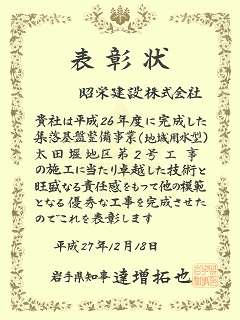 表彰状
昭栄建設株式会社
貴社は平成26年度に完成した
集落基盤整備事業(地域用水型)
太田堰地区第2号工事
の施工に当たり卓越した技術と
旺盛なる責任感をもって他の模範
となる優秀な工事を完成させた
のでこれを表彰します
平成27年12月18日
岩手県知事 達増拓也